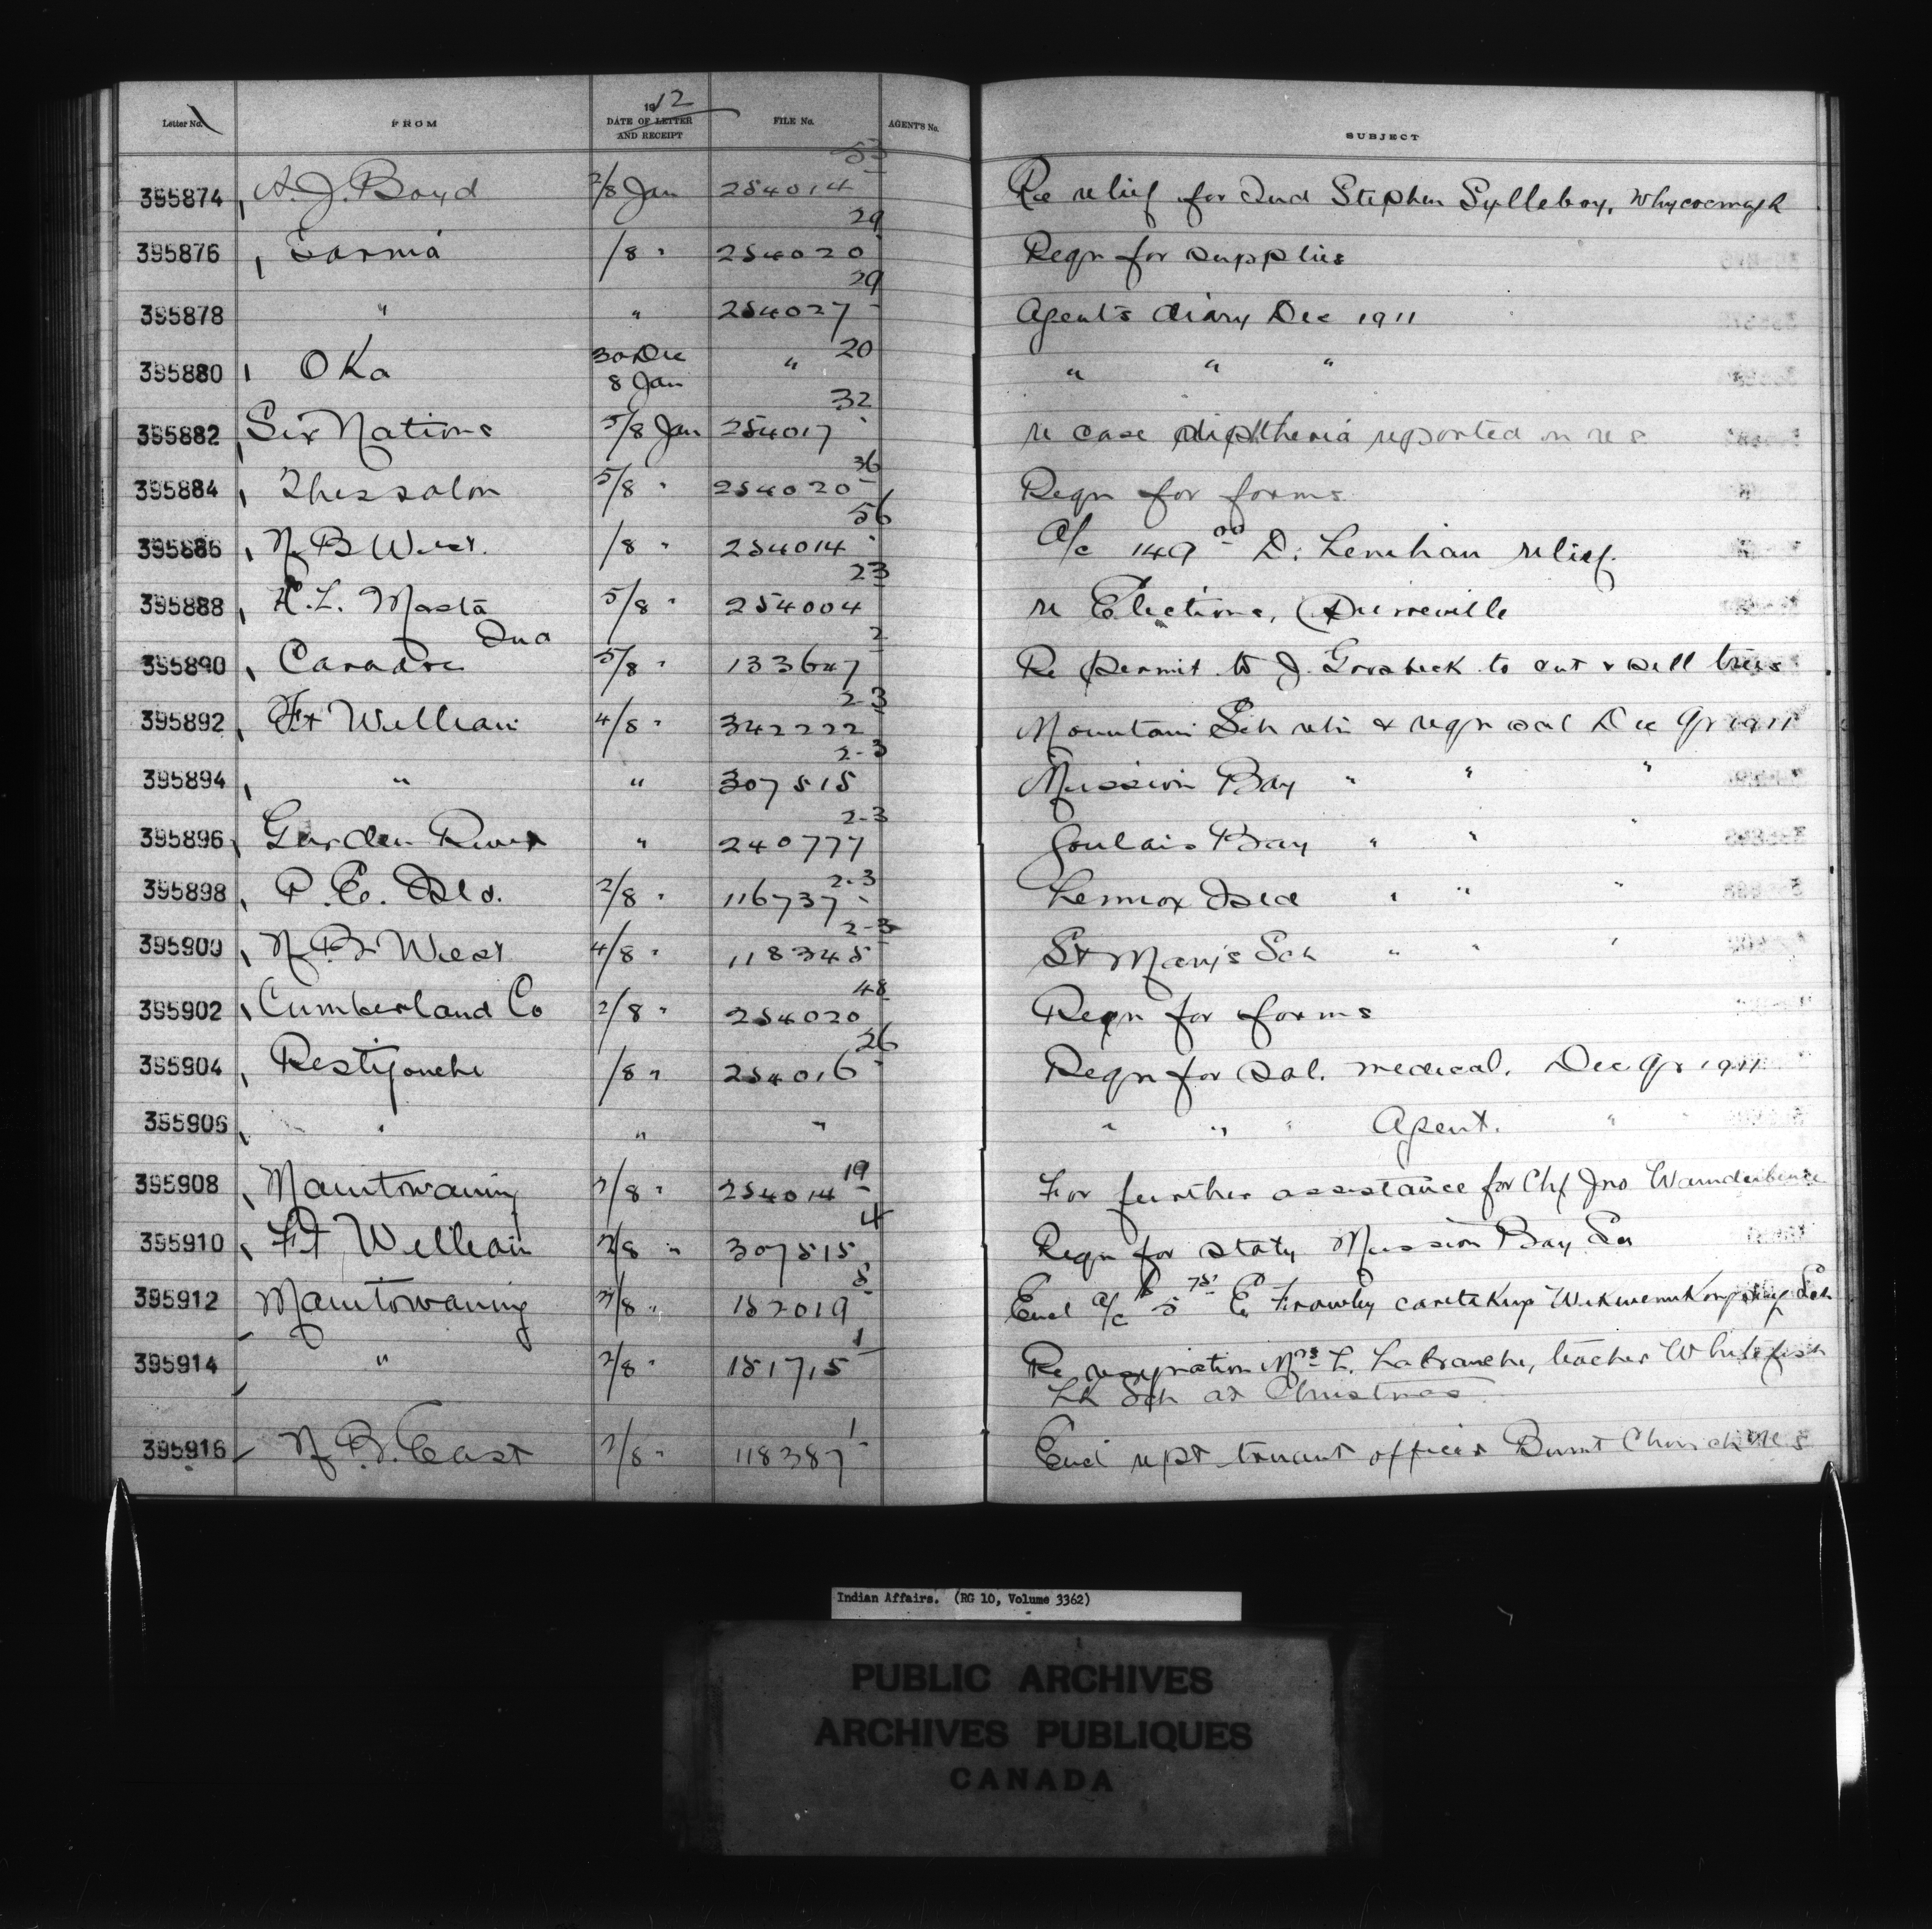 Letter No. FROM 1912 DATE OF LETTER AND RECEIPT FILE No. AGENT'S No. SUBJECT
395874 A. J. Boyd 2/8 Jan 254014-53 Re relief for Ind Stephen Sylleboy, Whycocmagh
395876 Sarnia /8 " 254020-29 Reqn for supplies
395878 " " 254027-29 Agent's diary Dec 1911
395880 Oka 30 Dec 8 Jan " 20 " " "
395882 Six Nations 5/8 Jan 254017-32 re case diphtheria reported on res
395884 Thessalon 5/8 " 254020-36 Reqn for forms
395886 N. B. West. /8 " 254014-56 A/c 149 00 D. Lenehan relief.
395888 H. L. Masta 5/8 " 254004-23 re Elections, Pierreville
395890 Caradoc Ind 5/8 " 133647-2 Re permit to J. Grosbeck to cut & sell trees
395892 Ft William 4/8 " 342222-2-3 Mountain Sch retn & reqn sal Dec Qr 1911
395894 " " 307515 2-3 Mission Bay " " "
395896 Garden River " 240777 2-3 Goulais Bay " " "
395898 P. E. Isld. 2/8 " 116737-2-3 Lennox Isld " " "
395900 N. B. West 4/8 " 118345-2-3 St Mary's Sch " " "
395902 Cumberland Co 2/8 " 254020 48 Reqn for forms
395904 Restigouche /8 " 254016-26 Reqn for sal. medical. Dec Qr 1911
395906 " " " " " " Agent. "
395908 Manitowaning 2/8 " 254014-19 For further assistance for Chf Jno
395910 Ft William 2/8 " 307515 4 Reqn for staty Mission Bay Sch
395912 Manitowaning 2/8 " 152019-5 Encl a/c 5 75 E. Frawley caretakup Sch
395914 " 2/8 " 151715-1 Re resignation Mrs L. Labranche, teacher Whitefish
Lk Sch at Christmas
395916 N. B. East 2/8 " 118387-1 Encl rept truant officer Burnt Church res
Indian Affairs. (RG 10, Volume 3362)
PUBLIC ARCHIVES
ARCHIVES PUBLIQUES
CANADA